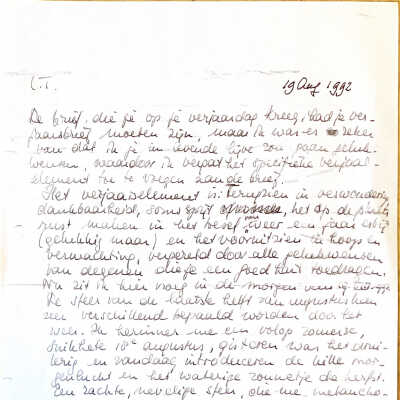 L.T.
19 Aug 1992
De brief, die je op je verjaardag kreeg, had je ver-
jaarsbrief moeten zijn, maar ik was er zeker
van dat ik je in levende lijve zou gaan geluk-
wensen, waardoor ik vergat het specifieke verjaar-
element toe te voegen aan de brief.
Het verjaarselement is: terugzien in verwondering,
dankbaarheid, soms spijt, het op de
rust maken in het besef van weer een jaar
(gelukkig maar) en het vooruitzien in hoop en
verwachting, vergezeld door alle gelukwensen
van degenen die je een goed hart toedragen.
Nu zit ik hier vroeg in de morgen van
De sfeer van de laatste helft van augustus kan
zeer verschillend bepaald worden door het
weer. Ik herinner me een volop zomerse,
snikhete 18e augustus, gisteren was het
en vandaag introduceren de kille mor-
genlucht en het waterige zonnetje de herfst.
Een zachte, nevelige sfeer, die me melancho-